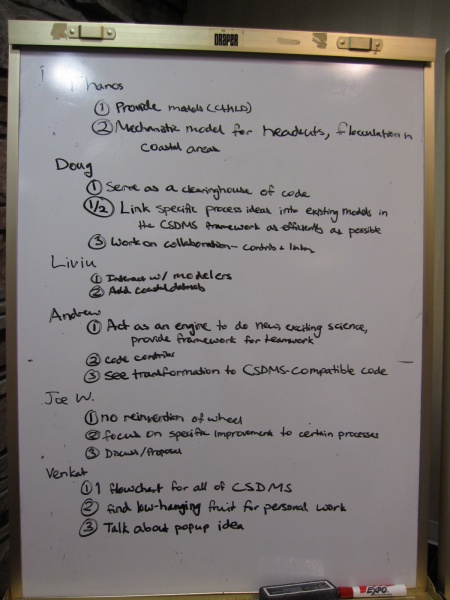 DRAPER
Thanos
① Provide models (CHILD)
② Mechanistic model for headcuts, flocculation in
coastal areas
Doug
① Serve as a clearinghouse of code
1/2 Link specific process ideas into existing models in
the CSDMS framework as efficiently as possible
③ Work on collaboration - contribs +
Liviu
① Interact w/ modelers
② Add coastal datasets
Andrew
① Act as an engine to do new, exciting science,
provide framework for teamwork
② code contribs
③ see transformation to CSDMS-compatible code
Joe W.
① no reinvention of wheel
② focus on specific improvement to certain processes
③ Discuss/Proposal
Venkat
① 1 flowchart for all of CSDMS
② find low-hanging fruit for personal work
③ Talk about popup idea
EXPO